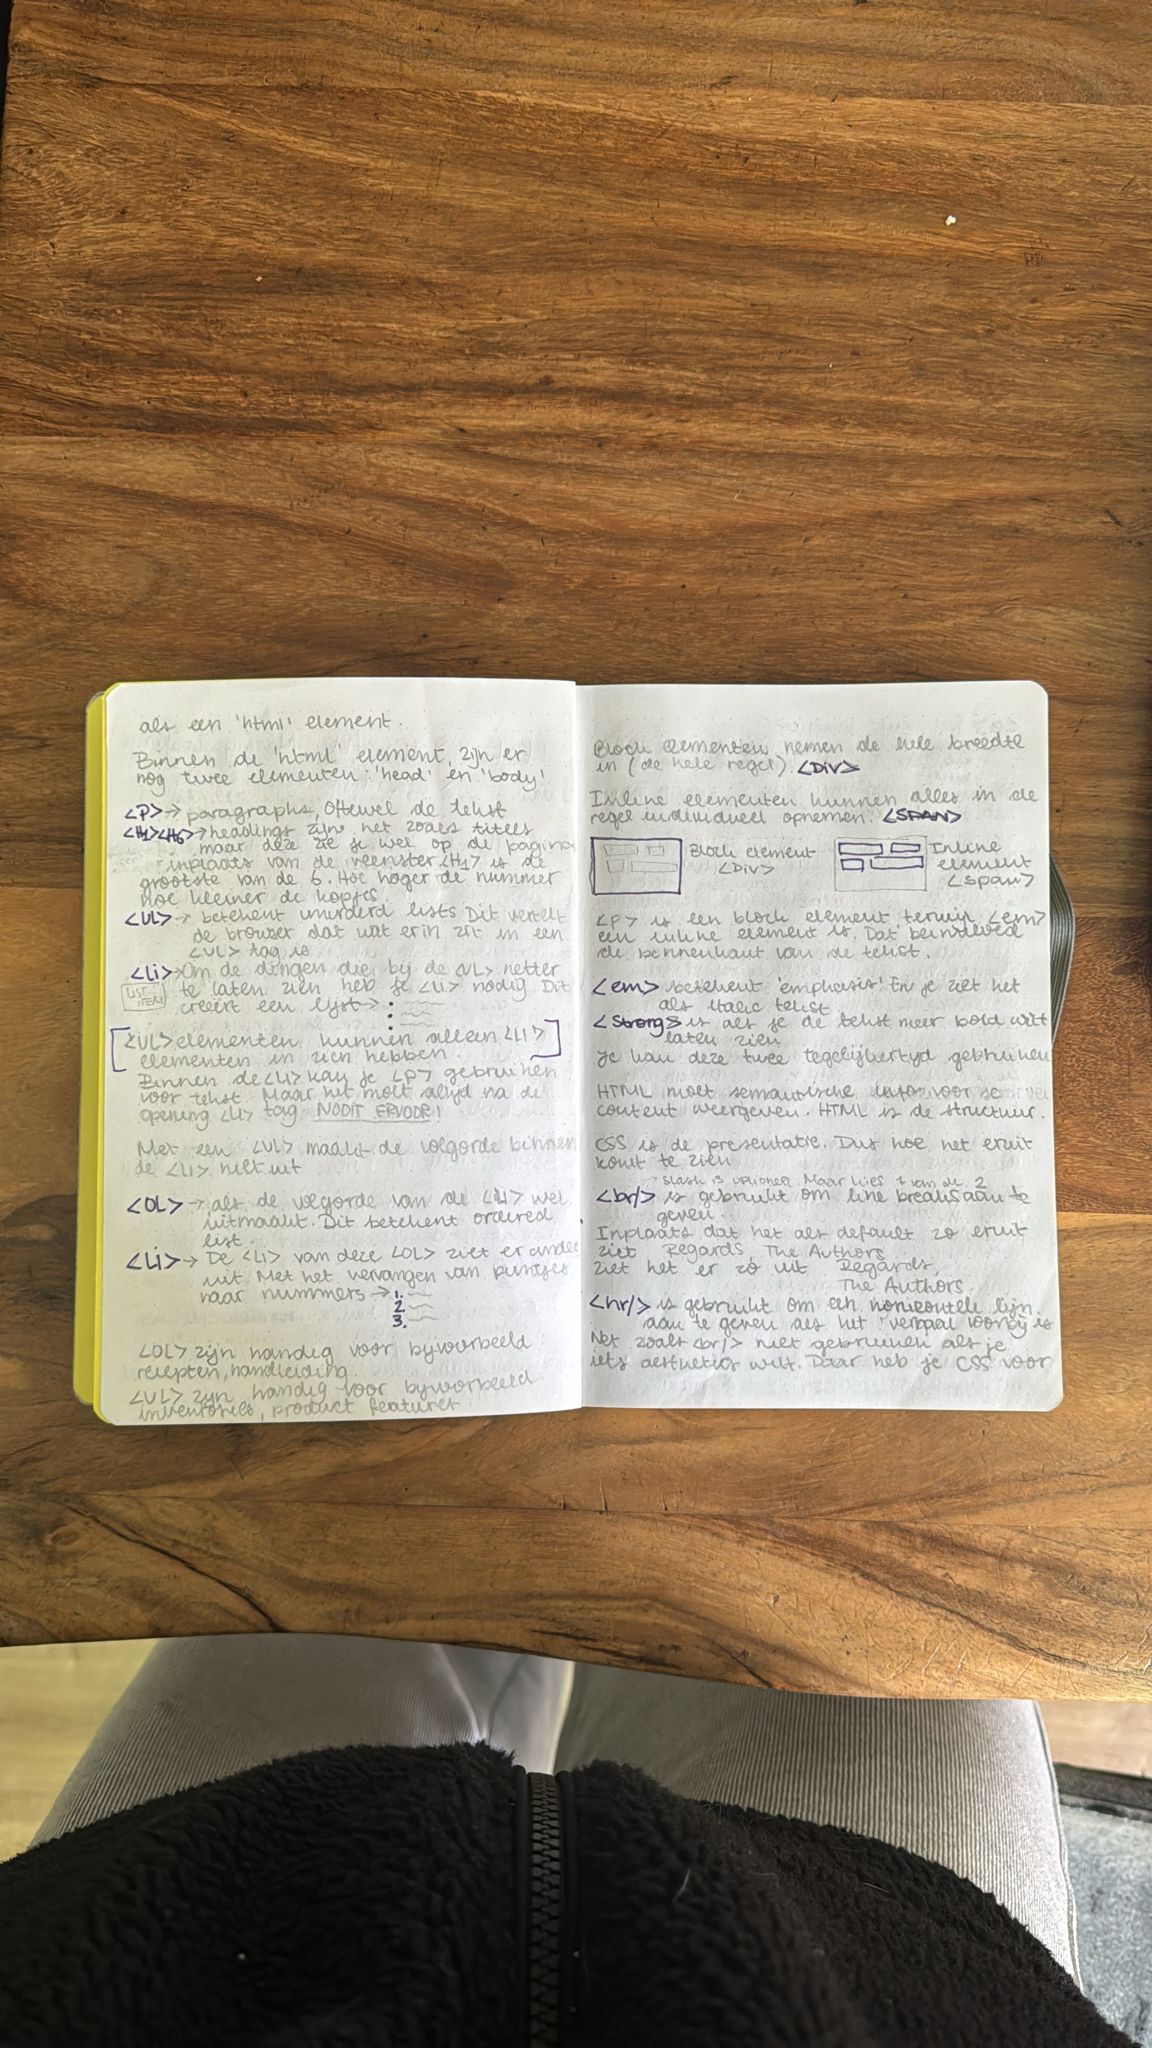 als een 'html' element.
Binnen de 'html' element, zijn er
nog twee elementen: 'head' en 'body'
<P> → paragraphs, oftewel de tekst
<H1><H6> → headings zijn net zoals titels
maar deze zie je wel op de pagina
inplaats van de veenster <H1> is de
grootste van de 6. Hoe hoger de nummer
hoe kleiner de kopjes
<UL> → betekent unorderd lists Dit vertelt
de browser dat wat erin zit in een
<UL> tag is
<Li> → Om de dingen die bij de <UL> netter
te laten zien heb je <Li> nodig Dit
creëert een lijst →
LIST ITEM
[<UL> elementen kunnen alleen <LI>
elementen in zich hebben.]
Binnen de <Li> kan je <P> gebruiken
voor tekst. Maar het moet altijd na de
opening <Li> tag NOOIT ERVOOR!
Met een <UL> maakt de volgorde binnen
de <Li> niet uit
<OL> → als de volgorde van de <Li> wel
uitmaakt. Dit betekent ordered
list.
<Li> → De <Li> van deze <OL> ziet er anders
uit. Met het vervangen van puntjes
naar nummers → 1.
2.
3.
<OL> zijn handig voor bijvoorbeeld
recepten, handleiding
<UL> zijn handig voor bijvoorbeeld
inventories, product features
Block elementen nemen de hele breedte
in (de hele regel) <Div>
Inline elementen kunnen alles in de
regel individueel opnemen. <SPAN>
Block element
<Div>
Inline
element
<Span>
<P> is een block element terwijl <em>
een inline element is. Dat
de binnenkant van de tekst.
<em> betekent 'emphasis' En je ziet het
als Italic tekst
<Strong> is als je de tekst meer bold wilt
laten zien
Je kan deze twee tegelijkertijd gebruiken
HTML moet semantische info voor je
content weergeven. HTML is de structuur.
CSS is de presentatie. Dus hoe het eruit
komt te zien
slash is optioneel Maar kies 1 van de 2
<br/> is gebruikt om line breaks aan te
geven.
Inplaats dat het als default zo eruit
ziet Regards, The Authors
ziet het er zo uit Regards,
The Authors.
<hr/> is gebruikt om een horizontele lijn
aan te geven als het verhaal voorbij is
Net zoals <br/> niet gebruiken als je
iets aesthetics wilt. Daar heb je CSS voor